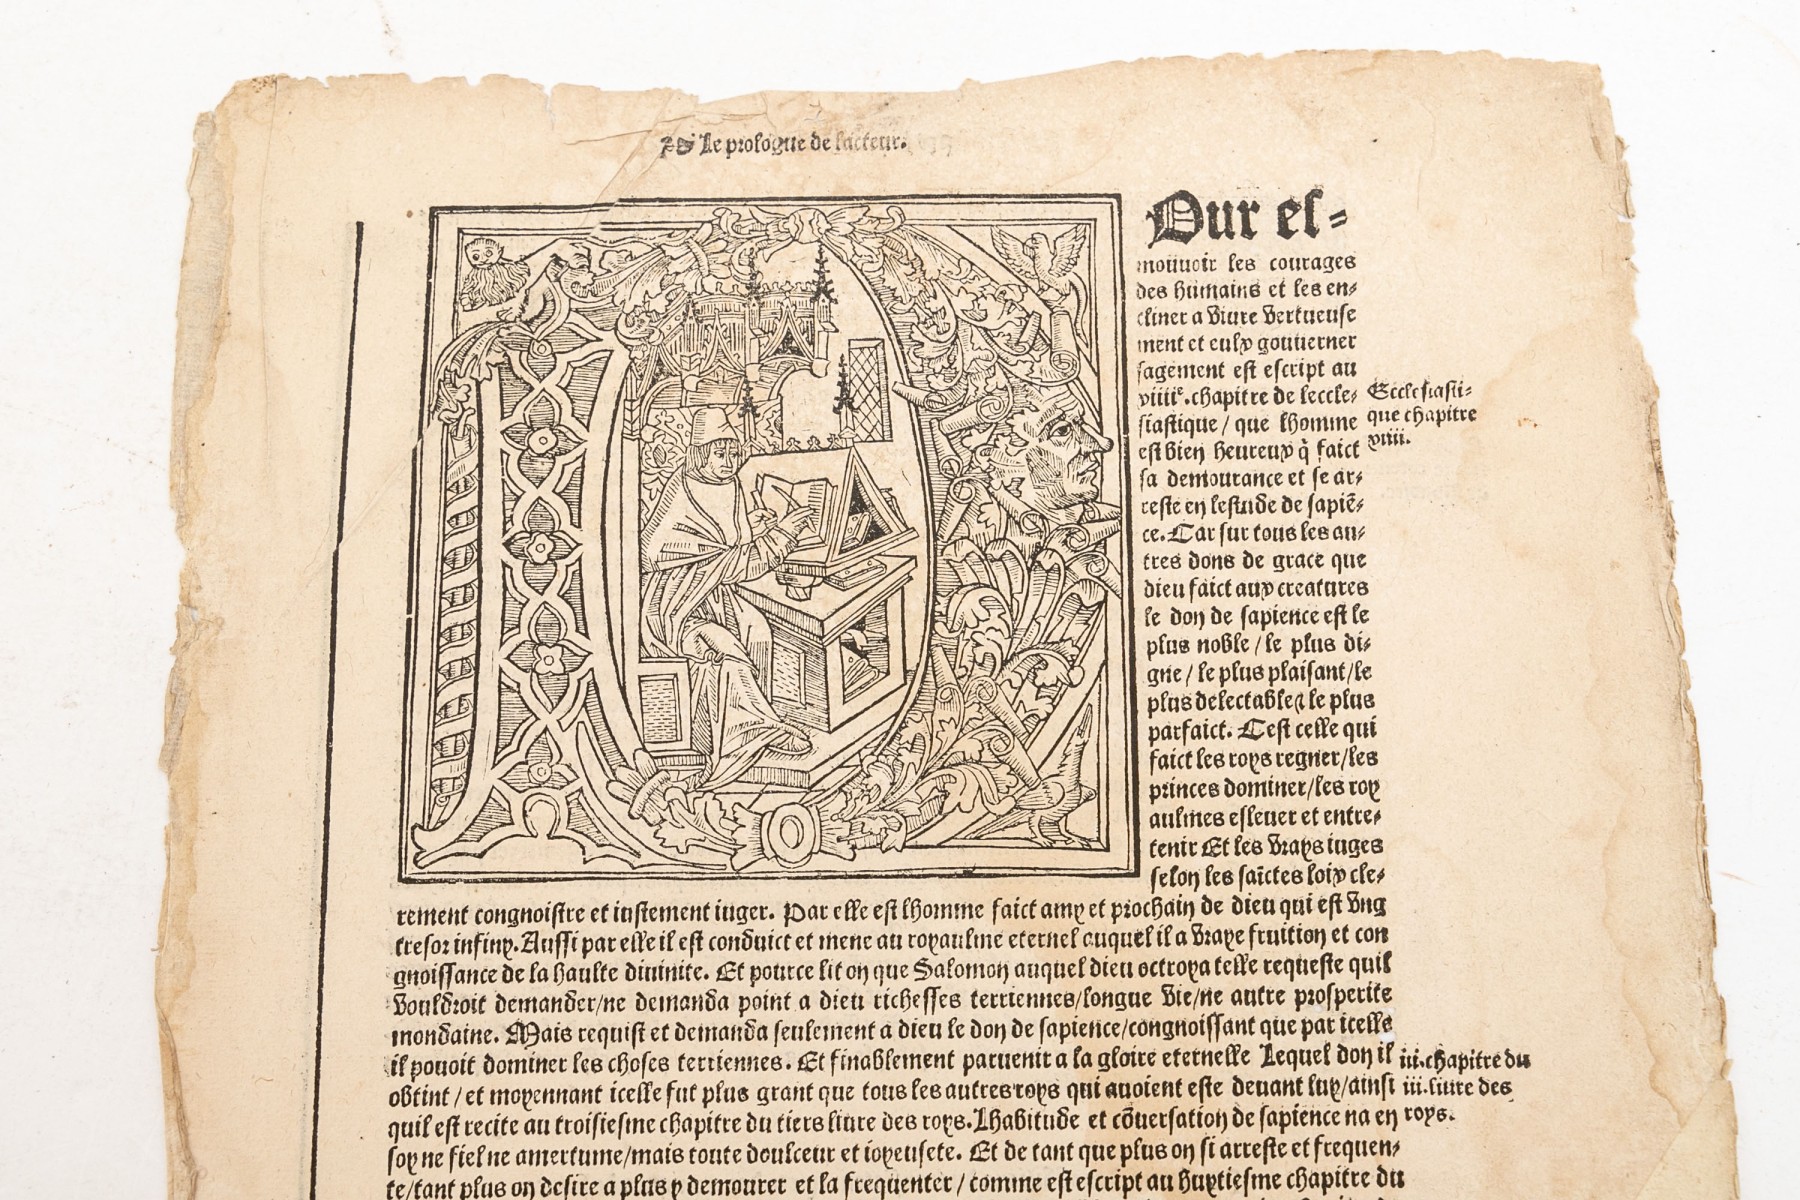 Le prologue de lacteur.
Our es⸗
mouuoir les courages
des humains et les en⸗
cliner a viure vertueuse
ment et eulx gouuerner
sagement est escript au
xiiiiᵉ. chapitre de leccle⸗
siastique / que lhomme
est bien heureux q̃ faict
sa demourance et se ar⸗
reste en lestude de sapiẽ⸗
ce. Car sur tous les au⸗
tres dons de grace que
dieu faict aux creatures
le don de sapience est le
plus noble / le plus di⸗
gne / le plus plaisant/le
plus delectable⁊ le plus
parfaict. Cest celle qui
faict les roys regner/les
princes dominer/les roy
aulmes esleuer et entre⸗
tenir Et les vrays iuges
selon les saĩctes loix cle⸗
Ecclesiasti⸗
que chapitre
xiiii.
rement congnoistre et iustement iuger. Par elle est lhomme faict amy et prochain de dieu qui est vng
tresor infiny. Aussi par elle il est conduict et mene au royaulme eternel auquel il a vraye fruition et con
gnoissance de la haulte diuinite. Et pource lit on que Salomon auquel dieu octroya telle requeste quil
vouldroit demander/ne demanda point a dieu richesses terriennes/longue vie/ne autre prosperite
mondaine. Mais requist et demanda seulement a dieu le don de sapience/congnoissant que par icelle
il pouoit dominer les choses terriennes. Et finablement paruenir a la gloire eternelle Lequel don il
obtint / et moyennant icelle fut plus grant que tous les autres roys qui auoient este deuant luy/ainsi
quil est recite au troisiesme chapitre du tiers liure des roys. Lhabitude et cõuersation de sapience na en
iii. chapitre du
iii. liure des
roys.
soy ne fiel ne amertume/mais toute doulceur et ioyeusete. Et de tant que plus on si arreste et frequen⸗
te/tant plus on desire a plus y demourer et la frequenter / comme est escript au huytiesme chapitre du